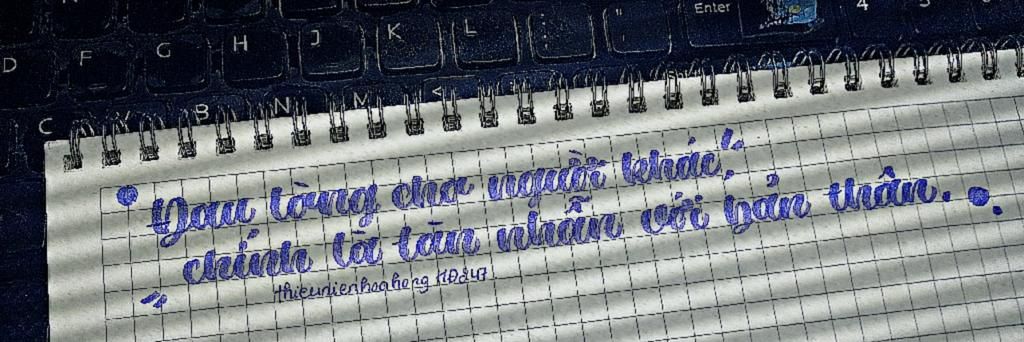 Enter
4
5
D F G H J K L : "
; '
C V B N M <
Đau lòng cho người khác,
chính là tàn nhẫn với bản thân.
thieunienhoahong